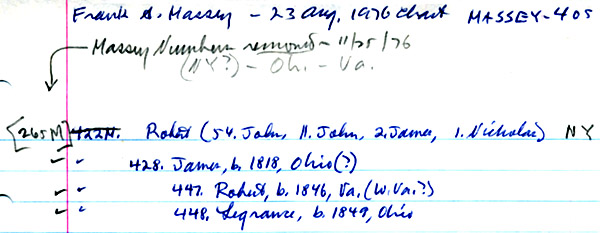 Frank A. Massey - 23 Aug. 1976 chart MASSEY-405
Massey Numbers removed - 11/25/76
(NY?) - Ohi. - Va.
[265M] 422N. Robert (54. John, 11. John, 2. James, 1. Nicholas) NY
✓ " 428. James, b. 1818, Ohio(?)
✓ " 447. Robert, b. 1846, Va. (W. Va.?)
✓ " 448. Legrance, b. 1849, Ohio